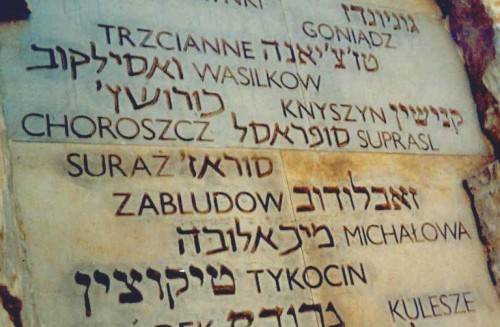 גוניונדז
GONIADZ
TRZCIANNE טז'צ'יאנה
ואסילקוב WASILKOW
כורושץ' KNYSZYN קנישין
CHOROSZCZ סופראסל SUPRASL
SURAŻ סוראז'
ZABLUDOW זאבלודוב
מיכאלובה MICHAŁOWA
טיקוצין TYKOCIN
KULESZE